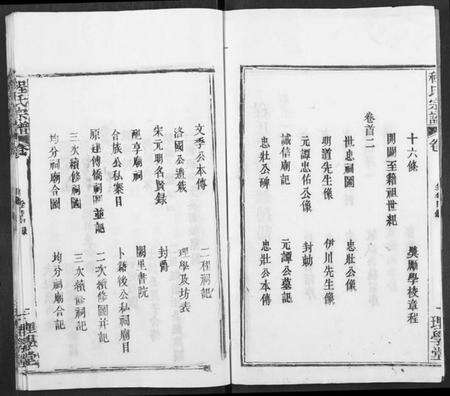 程氏宗譜
卷
十六條
獎勵學校章程
開闢至籍祖世紀
卷首二
世忠祠圖
忠壯公像
明道先生像
伊川先生像
元譚忠佑公像
封勅
誠信廟記
元譚公墓記
忠壯公碑
忠壯公本傳
理學堂
文季公本傳
二程祠記
洛國公遺蹟
理學及坊表
宋元明名賢錄
封爵
配享廟祠
闕里書院
合族公私案目
卜籍後公私祠廟目
原建傅橋祠圖並記
二次續修圖并記
三次續修祠圖
三次續修祠記
均分祠廟合圖
均分祠廟合記
程氏宗譜
卷
理學堂